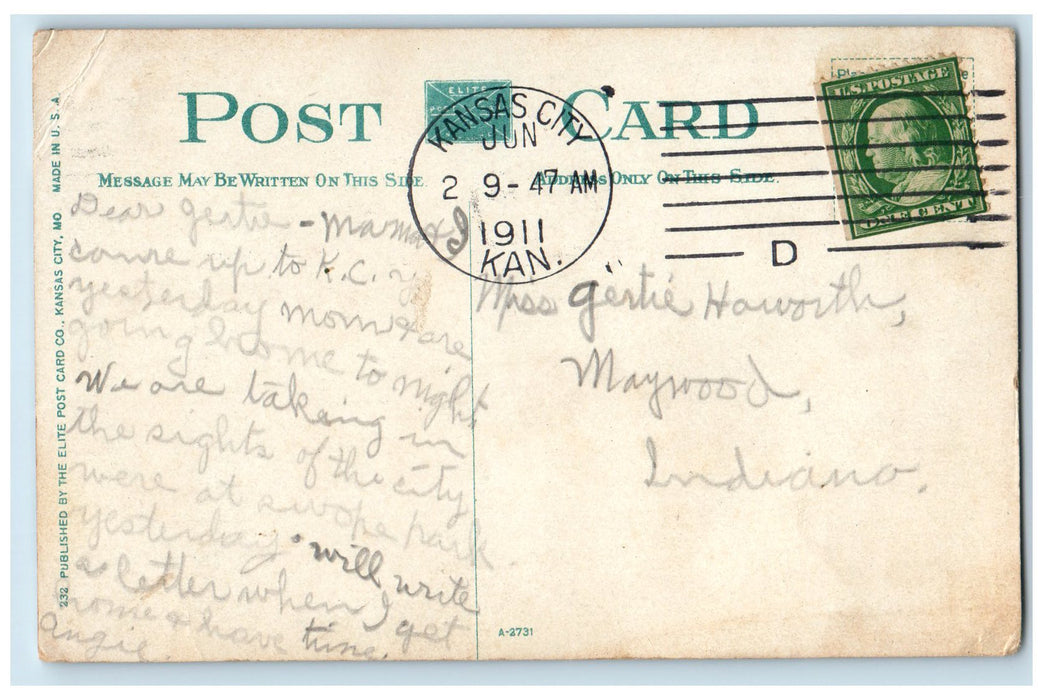 POST CARD
ELITE
MESSAGE MAY BE WRITTEN ON THIS SIDE
ADDRESS ONLY ON THIS SIDE
U.S. POSTAGE
ONE CENT
KANSAS CITY
JUN
2 9-47 AM
1911
KAN.
D
Dear Gertie - Mama & I
come up to K.C.
yesterday morn & are
going home to night
We are taking in
the sights of the city
were at swope park
yesterday. will write
a letter when I get
home & have time.
Angie.
Miss Gertie Haworth,
Maywood,
Indiana.
232 PUBLISHED BY THE ELITE POST CARD CO., KANSAS CITY, MO MADE IN U.S.A.
A-2731